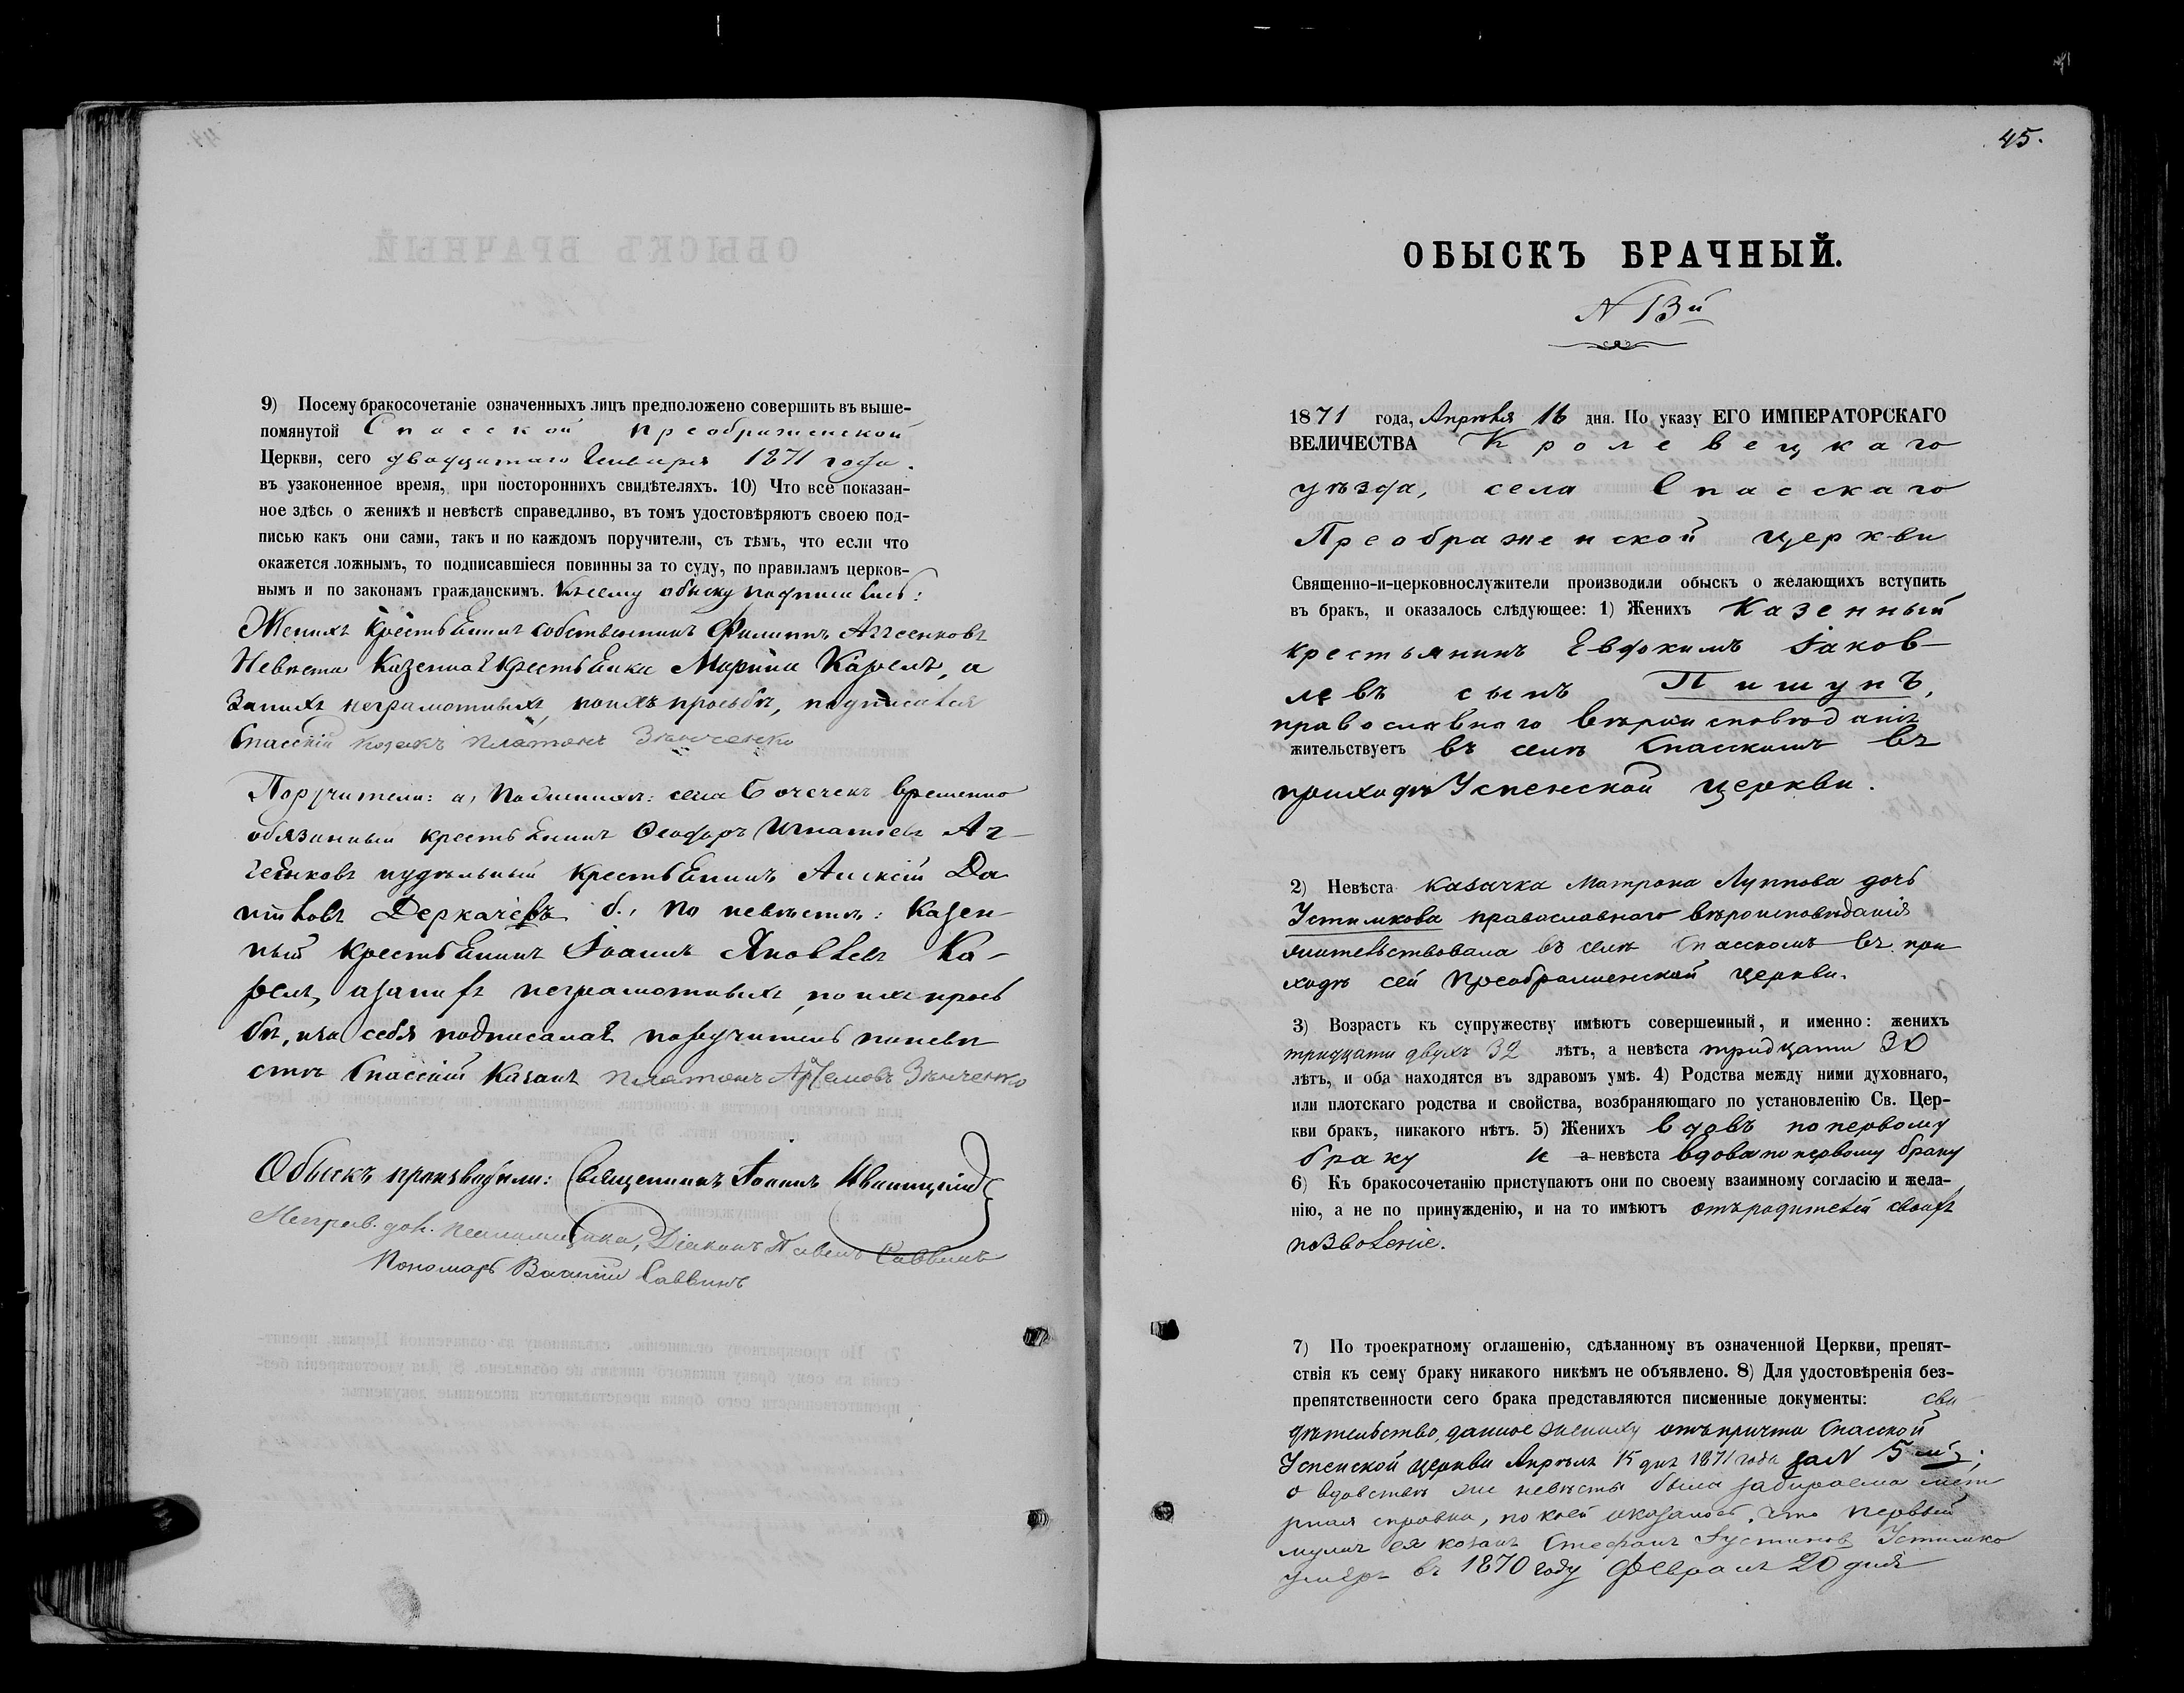 9) Посему бракосочетаніе означенныхъ лицъ предположено совершить въ выше-
помянутой Спасской Преображенской
Церкви, сего двадцатаго Января 1871 года.
въ узаконенное время, при постороннихъ свидѣтеляхъ. 10) Что все показан-
ное здѣсь о женихѣ и невѣстѣ справедливо, въ томъ удостовѣряютъ своею под-
писью какъ они сами, такъ и по каждомъ поручители, съ тѣмъ, что если что
окажется ложнымъ, то подписавшіеся повинны за то суду, по правиламъ церков-
нымъ и по законамъ гражданскимъ. Къ сему обыску подписались:
Женихъ Крестьянинъ собственникъ Филиппъ
Невѣста Казенная Крестьянка Марина Карелъ, а
за нихъ неграмотныхъ, по ихъ просьбѣ, подписался
Спасскій козакъ Платонъ Зѣнченко
Поручители: а, По женихѣ: села Бочечекъ временно
обязанный крестьянинъ Ѳеодоръ Игнатіевъ
крестьянинъ Алексій Да
ниловъ Деркачевъ б., По невѣстѣ: Казен-
ный крестьянинъ Іоаннъ Яковлевъ Ка-
релъ, а за нихъ неграмотныхъ, по ихъ прось
бѣ, и за себя подписался поручитель по невѣ
стѣ Спасскій Казакъ Платонъ Артемовъ Зѣнченко
Обыскъ производили: Священникъ Іоаннъ Иваницкій
Исправ. дол. псаломщика, Діаконъ Павелъ Саввинъ
Пономарь Василій Саввинъ
45.
ОБЫСКЪ БРАЧНЫЙ.
N 13й
1871 года, Апрѣля 16 дня. По указу ЕГО ИМПЕРАТОРСКАГО
ВЕЛИЧЕСТВА Кролевецкаго
уѣзда, села Спасскаго
Преображенской церкви
Священно-и-церковнослужители производили обыскъ о желающихъ вступить
въ бракъ, и оказалось слѣдующее: 1) Женихъ Казенный
крестьянинъ Евдокимъ Іаков-
левъ сынъ Пишунъ,
православнаго вѣроисповѣданія
жительствуетъ въ селѣ Спасскомъ въ
приходѣ Успенской церкви.
2) Невѣста казачка Матрона Луппова дочь
Устимкова православнаго вѣроисповѣданія
жительствовала въ селѣ Спасскомъ въ при
ходѣ сей Преображенской церкви.
3) Возрастъ къ супружеству имѣютъ совершенный, и именно: женихъ
тридцати двухъ 32 лѣтъ, а невѣста тридцати 30
лѣтъ, и оба находятся въ здравомъ умѣ. 4) Родства между ними духовнаго,
или плотскаго родства и свойства, возбраняющаго по установленію Св. Цер-
кви бракъ, никакого нѣтъ. 5) Женихъ вдовъ по первому
браку и а невѣста вдова по первому браку
6) Къ бракосочетанію приступаютъ они по своему взаимному согласію и жела-
нію, а не по принужденію, и на то имѣютъ отъ родителей своихъ
позволеніе.
7) По троекратному оглашенію, сдѣланному въ означенной Церкви, препят-
ствія къ сему браку никакого никѣмъ не объявлено. 8) Для удостовѣренія без-
препятственности сего брака представляются писменные документы: сви
дѣтельство, данное жениху отъ причта Спасской
Успенской церкви Апрѣля 15 дня 1871 года за N 5мъ;
о вдовствѣ же невѣсты была забираема мет
рная справка, по коей оказалось, что первый
мужъ ея козакъ Стефанъ Іустиновъ Устимко
умеръ въ 1870 году Февраля 20 дня